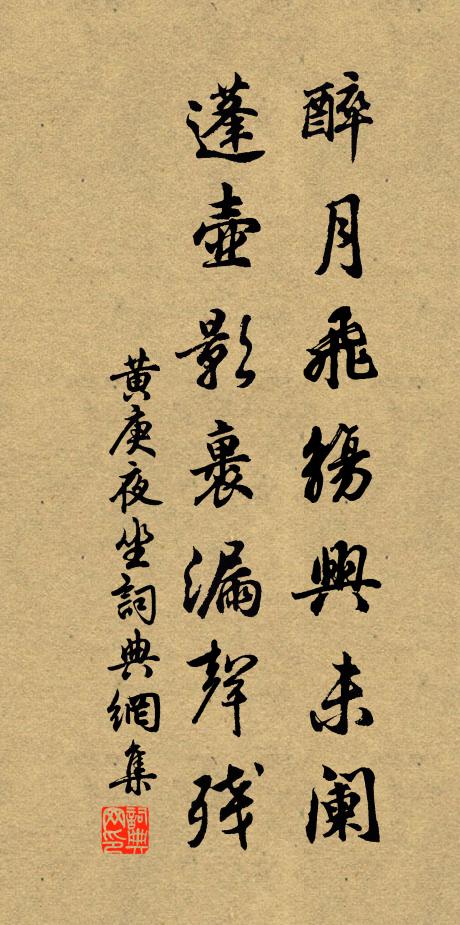 醉月飛觴興未闌
蓬壺影裏漏聲殘
黃庚夜坐詞典網集
詞典网印